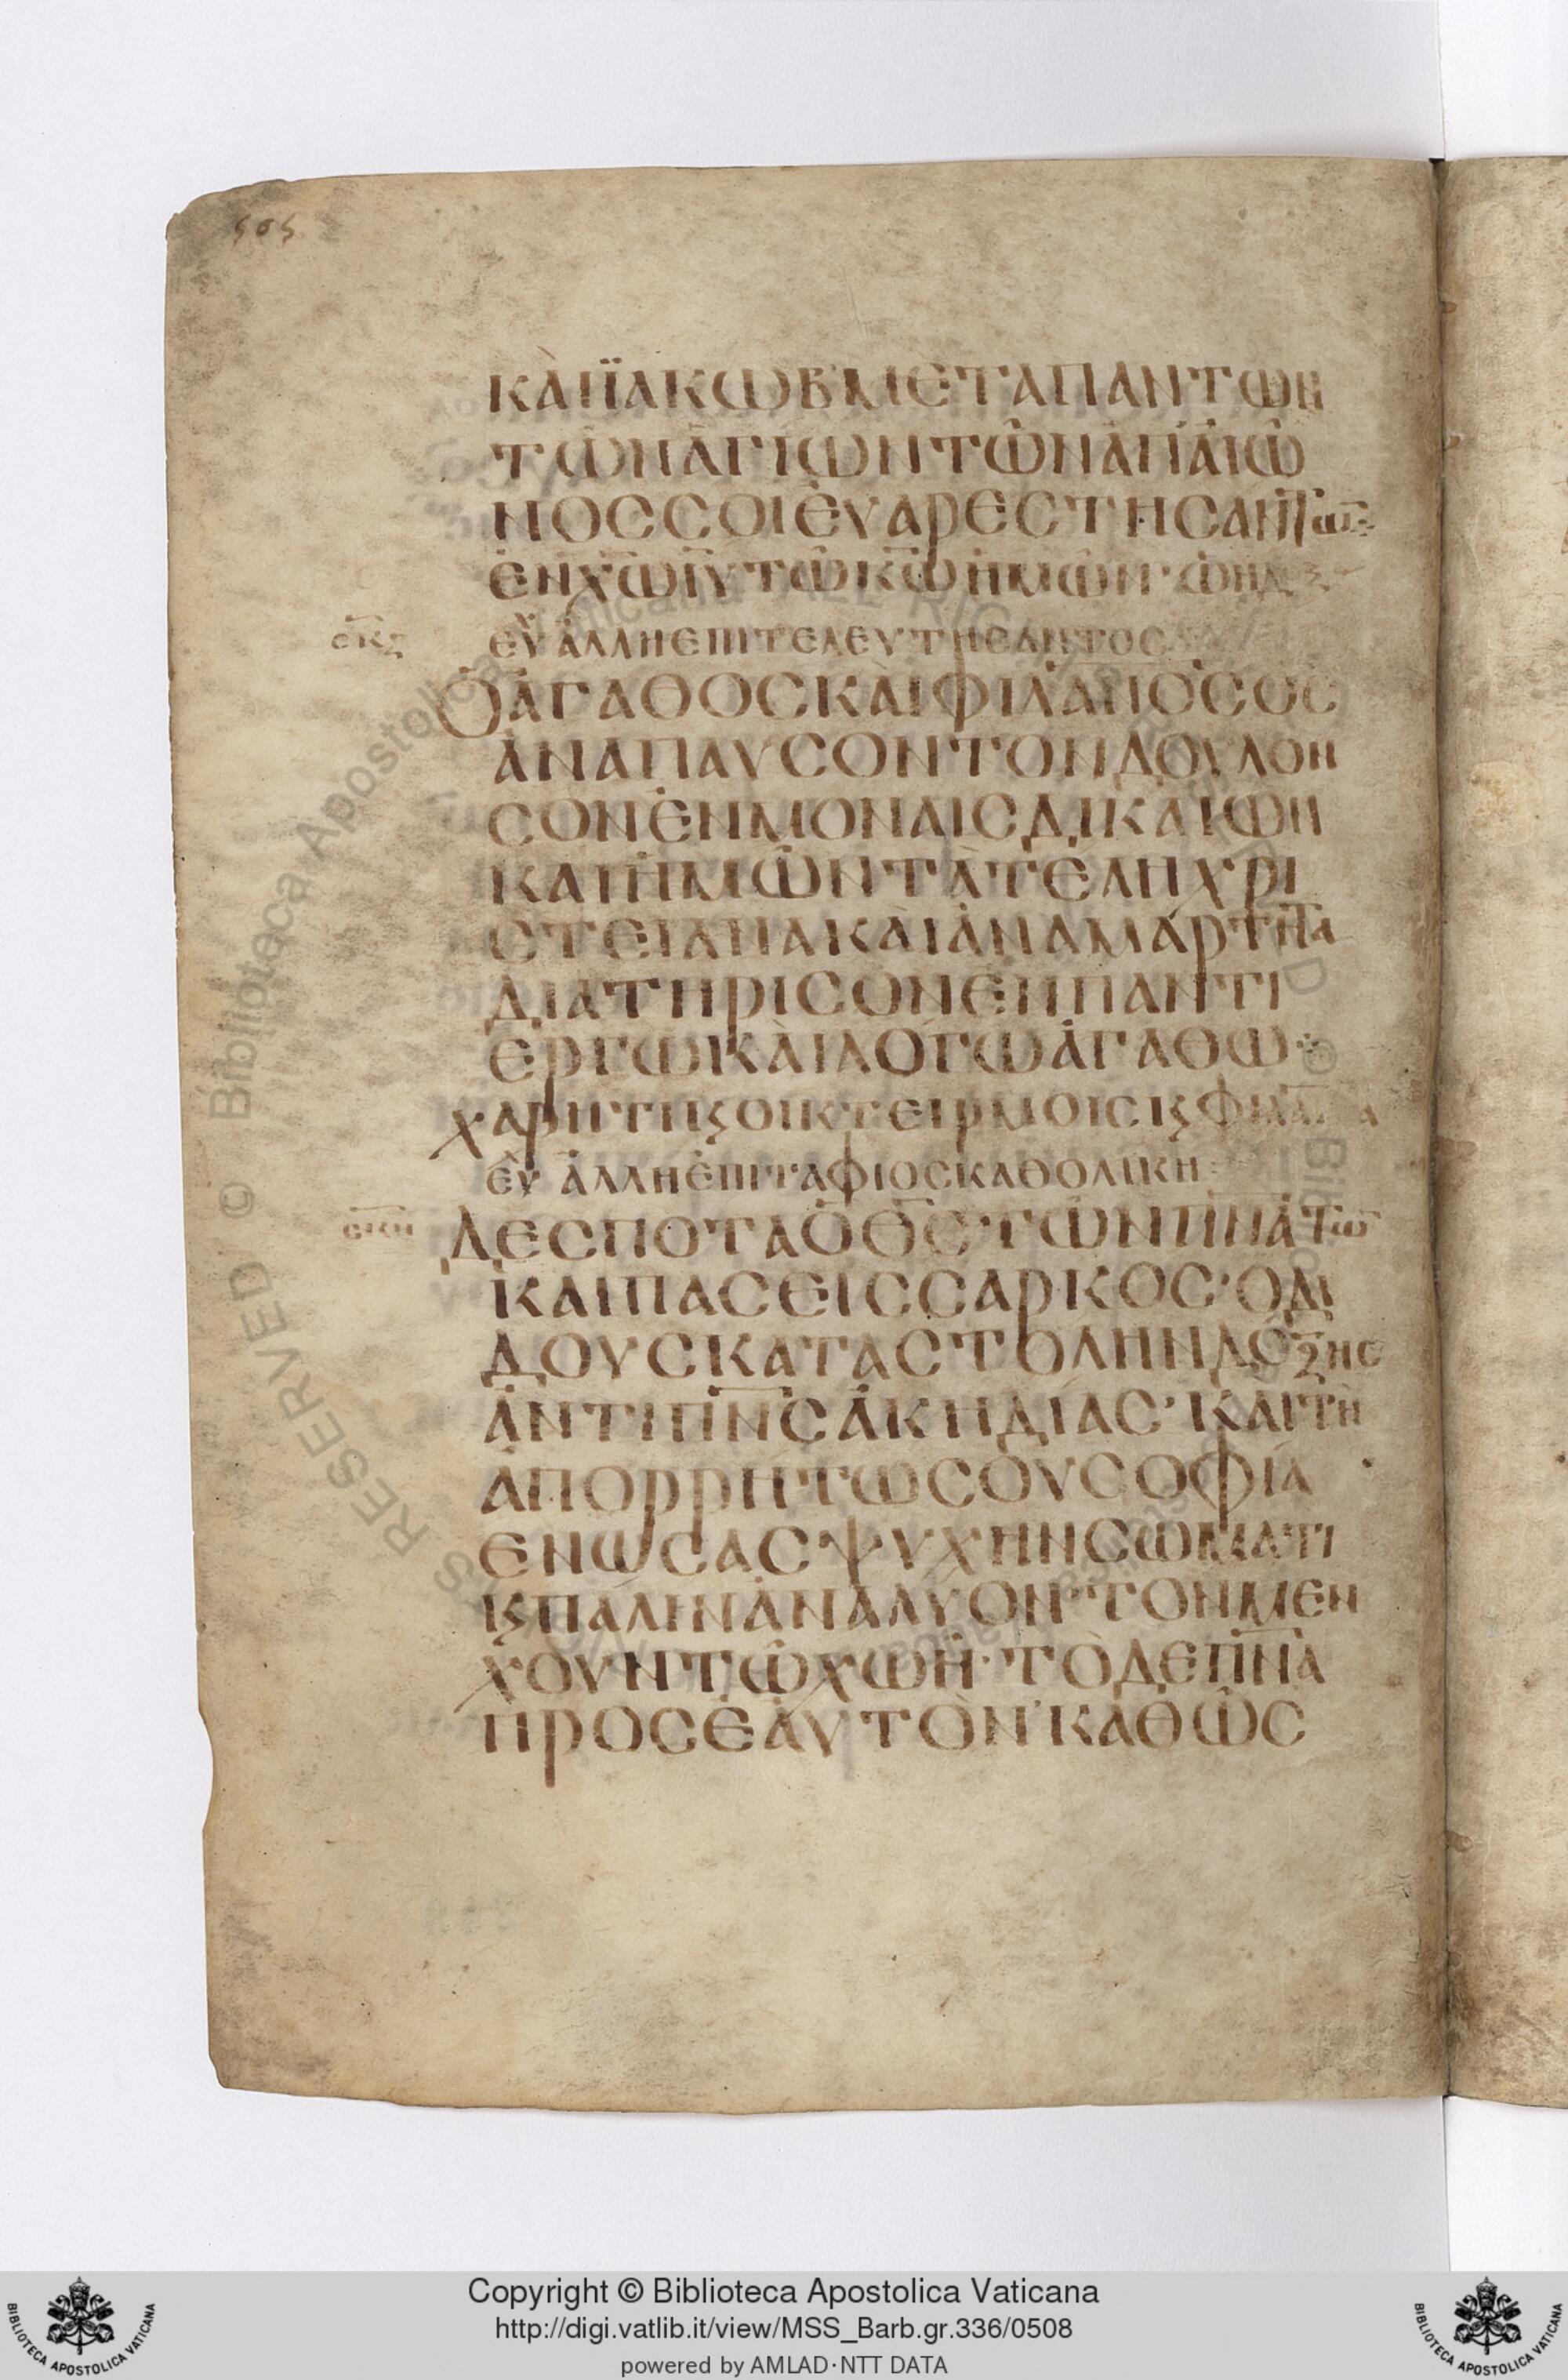 505
ΚΑΙΪΑΚΩΒ·ΜΕΤΑΠΑΝΤΩΝ
ΤΩΝΑΓΙΩΝΤΩΝΑΠΑΙΩ
ΝΟΣΣΟΙΕΥΑΡΕΣΤΗΣΑΝ
ΕΝΧ̅Ω̅Ι̅Υ̅ΤΩΚ̅Ω̅ΗΜΩΝ·
ΕΥ ΑΛΛΗΕΠΙΤΕΛΕΥΤΗΣΑΝΤΟΣ
ΟΑΓΑΘΟΣΚΑΙΦΙΛΑ̅Π̅Ο̅ΣΘΣ
ΑΝΑΠΑΥΣΟΝΤΟΝΔΟΥΛΟΝ
ΣΟΝΕΝΜΟΝΑΙΣΔΙΚΑΙΩΝ
ΚΑΙΗΜΩΝΤΑΤΕΛΗΧΡΙ
ΣΤΕΙΑΝΑΚΑΙΑΝΑΜΑΡΤΗΤΑ
ΔΙΑΤΗΡΙΣΟΝΕΝΠΑΝΤΙ
ΕΡΓΩΚΑΙΛΟΓΩΑΓΑΘΩ
ΧΑΡΗΤΙϗΟΙΚΤΕΙΡΜΟΙΣϗ
ΕΥ ΑΛΛΗΕΠΙΤΑΦΙΟΣΚΑΘΟΛΙΚΗ
σκη ΔΕΣΠΟΤΑΟΘ̅Σ̅·ΤΩΝΠ̅Ν̅Α̅ΤΩ̅
ΚΑΙΠΑΣΕΙΣΣΑΡΚΟΣ·ΟΔΙ
ΔΟΥΣΚΑΤΑΣΤΟΛΗΝΔΟΞΗΣ
ΑΝΤΙΠ̅Ν̅Σ̅ΑΚΗΔΙΑΣ·ΚΑΙΤΗ
ΑΠΟΡΡΗΤΩΣΟΥΣΟΦΙΑ
ΕΝΩΣΑΣΨΥΧΗΝΣΩΜΑΤΙ
ϗΠΑΛΙΝΑΝΑΛΥΟΝ·ΤΟΝΜΕΝ
ΧΟΥΝΤΩΧΩΗ·ΤΟΔΕΠ̅Ν̅Α̅
ΠΡΟΣΕΑΥΤΟΝ·ΚΑΘΩΣ
Copyright © Biblioteca Apostolica Vaticana
http://digi.vatlib.it/view/MSS_Barb.gr.336/0508
powered by AMLAD·NTT DATA
BIBLIOTECA APOSTOLICA VATICANA
BIBLIOTECA APOSTOLICA VATICANA